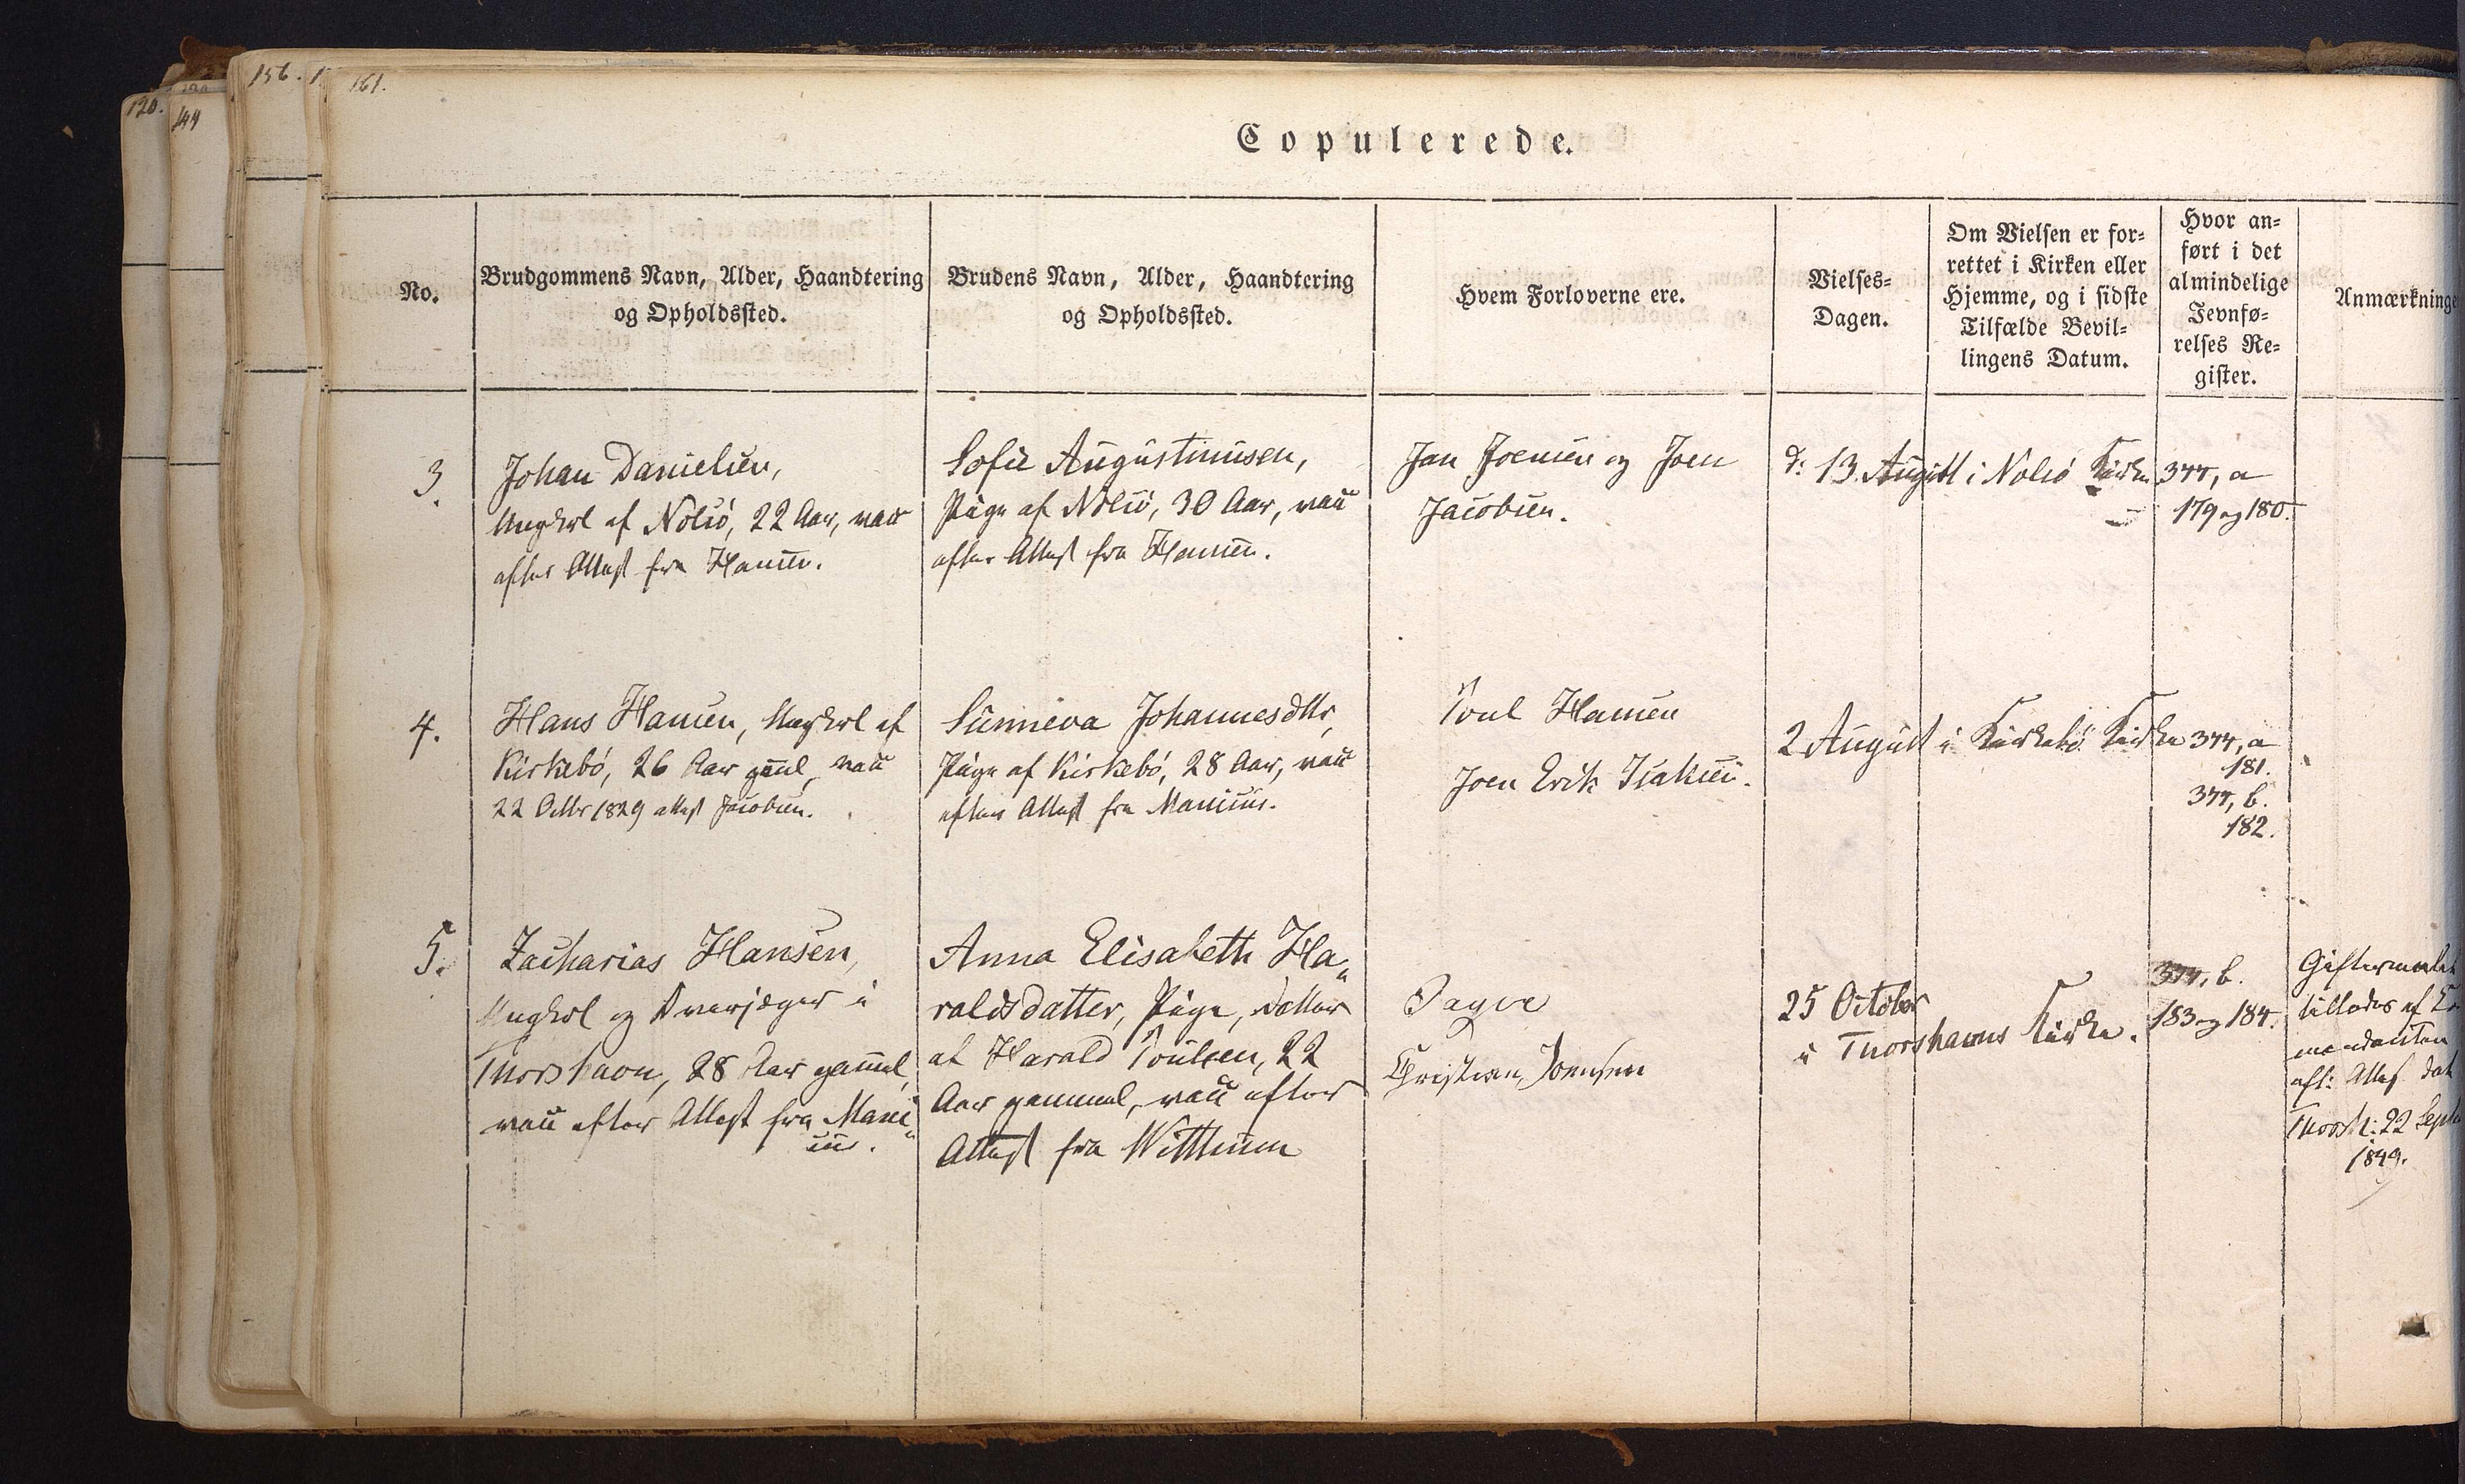 156.
161.
120.
144
Copulerede.
No.
Brudgommens Navn, Alder, Haandtering
og Opholdssted.
Brudens Navn, Alder, Haandtering
og Opholdssted.
Hvem Forloverne ere.
Vielses-
Dagen.
Om Vielsen er for-
rettet i Kirken eller
Hjemme, og i sidste
Tilfælde Bevil-
lingens Datum.
Hvor an-
ført i det
almindelige
Jevnfø-
relses Re-
gister.
Anmærkninge
3.
Johan Danielsen,
Ungkarl af Nolsö, 22 Aar, vacc
efter Attest fra Hansen.
Sofie Augustinusen,
Pige af Nolsö, 30 Aar, vacc
efter Attest fra Hansen.
Jan Joensen og Joen
Jacobsen.
d: 13 August i Nolsö Kirke
344, a
179 og 180.
4.
Hans Hansen, Ungkarl af
Kirkebö, 26 Aar gml, vacc
22 Octbr 1829 attest Jacobsen.
Sunneva Johannesdttr,
Pige af Kirkebö, 28 Aar, vacc
efter Attest fra Manicus.
Poul Hansen
Joen Erik Isaksen.
2 August i Kirkebö Kirke
344, a
181.
344, b.
182.
5.
Zacharias Hansen,
Ungkarl og Overjæger i
Thorshavn, 28 Aar gammel,
vacc efter Attest fra Mani"
cus.
Anna Elisabeth Ha"
raldsdatter, Pige, Datter
af Harald Poulsen, 22
Aar gammel, vacc efter
Attest fra
Christian Joensen
25 October
i Thorshavns Kirke.
344, b.
183 og 184.
Giftermaalet
tillades af
eft: Attest dat
Thorsh: 22 Septb
1849.